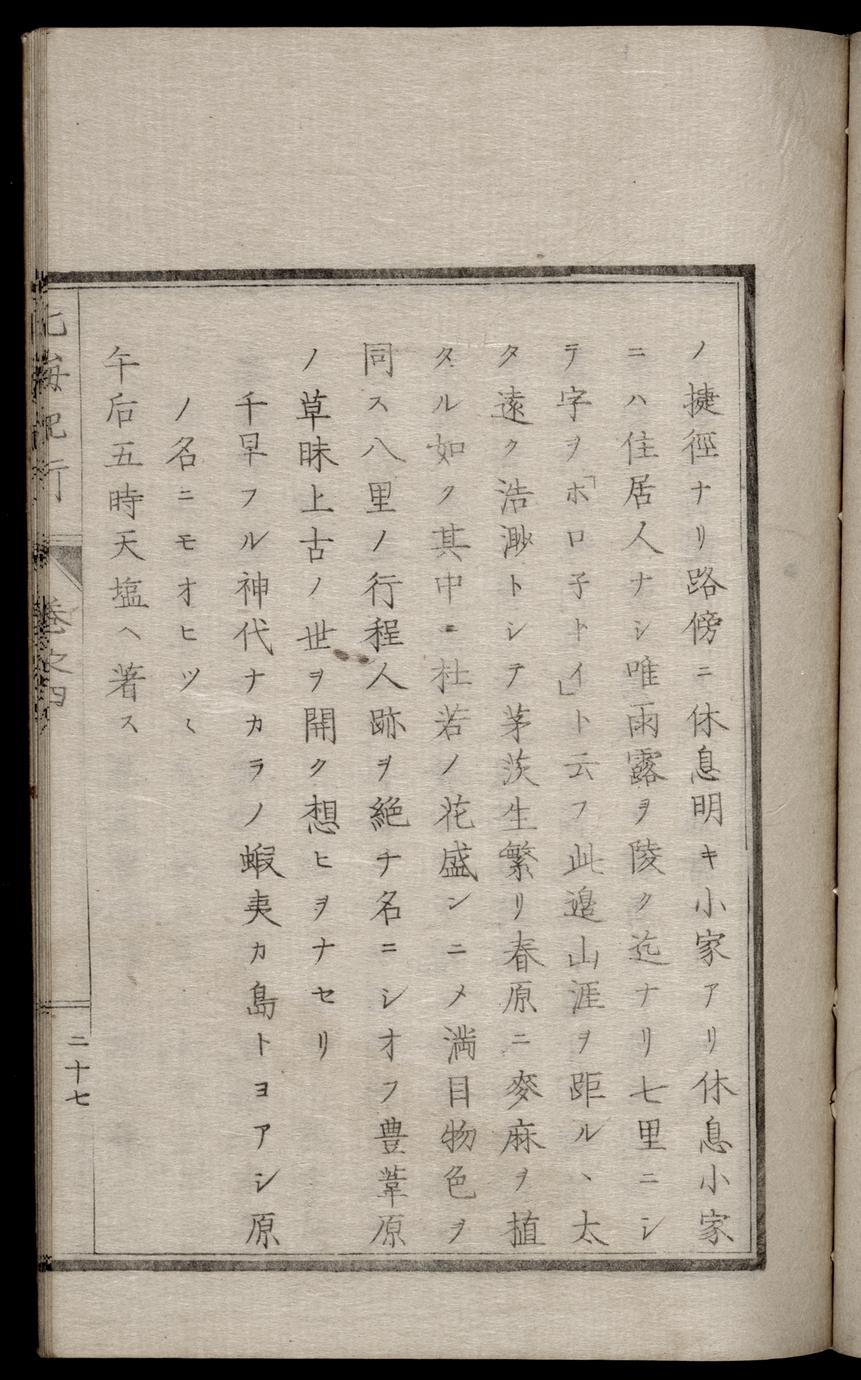 ノ捷徑ナリ路傍ニ休息明キ小家アリ休息小家
ニハ住居人ナシ唯雨露ヲ陵ク迄ナリ七里ニシ
テ字ヲ「ホロ子トイ」ト云フ此邉山涯ヲ距ルヽ太
タ遠ク浩渺トシテ茅茨生繁リ春原ニ麥麻ヲ植
タル如ク其中ニ杜若ノ花盛ンニメ満目物色ヲ
同ス八里ノ行程人跡ヲ絶チ名ニシオフ豊葦原
ノ草昧上古ノ世ヲ開ク想ヒヲナセリ
千早フル神代ナカラノ蝦夷カ島トヨアシ原
ノ名ニモオヒツヽ
午后五時天塩ヘ著ス
北海紀行
巻之四
二十七